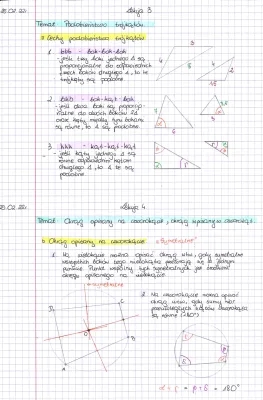 25.02.22r. Lekcja 3
Temat: Podobieństwo trójkątów.
Cechy podobieństwa trójkątów
1. bbb - bok-bok-bok
- jeśli trzy boki jednego Δ są
proporcjonalne do odpowiednich
trzech boków drugiego Δ, to te
trójkąty są podobne
3
4
6
2
4
2. bkb - bok-kąt-bok
- jeśli dwa boki są proporcjo-
nalne do dwóch boków Δ
oraz kąty między tymi bokami
są równe, to Δ są podobne.
7
6
3,5
3
3. kkk - kąt-kąt-kąt
- jeśli kąty jednego Δ są
równe odpowiednim kątom
drugiego Δ, to Δ są
podobne.
25.02.22r. Lekcja 4
Temat: Okrąg opisany na czworokącie, okrąg wpisany w czworokąt.
Okrąg opisany na czworokącie
1. Na wielokącie można opisać okrąg wtw, gdy symetralne
wszystkich boków tego wielokąta przecinają się w jednym
punkcie. Punkt wspólny tych symetralnych jest środkiem
okręgu opisanego na wielokącie.
D
C
B
A
2. Na czworokącie można opisać
okrąg wtw, gdy sumy miar
przeciwległych kątów czworokąta
są równe (180°)
α + γ = β + δ = 180°